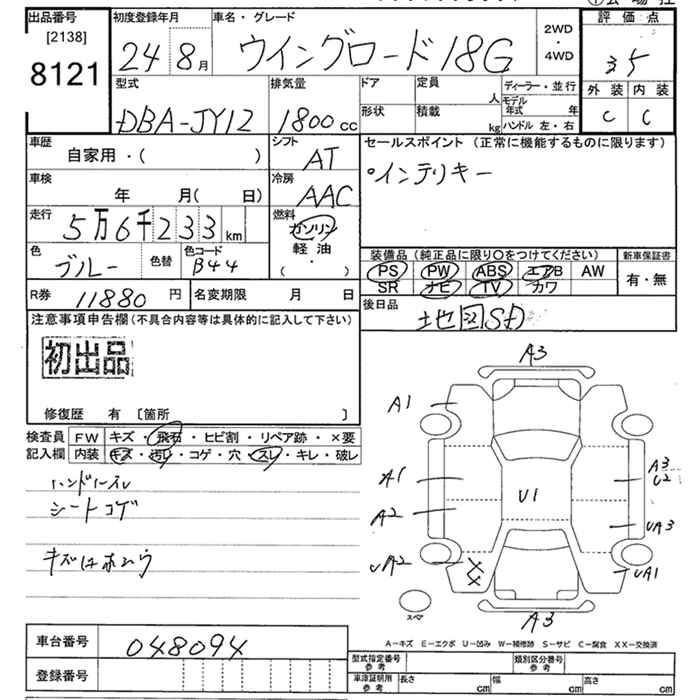 出品番号 初度登録年月 車名・グレード 評価点
[2138]
8121
24 8月 ウイングロード 18G 2WD・4WD 35
外装 内装
C C
型式 排気量 ドア 定員 人 ディーラー・並行
形状 積載 kg モデル年式 年
ハンドル 左・右
DBA-JY12 1800cc
車歴 シフト セールスポイント (正常に機能するものに限ります)
自家用・( ) AT
°インテリキー
車検 冷房
年 月( 日) AAC
走行 燃料
5万6千233km ガソリン
軽油
・( )
色 色替 色コード
ブルー B44
装備品 (純正品に限り○をつけてください) 新車保証書
PS PW ABS エアB AW 有・無
SR ナビ TV カワ
R券 11880円 名変期限 月 日
後日品
注意事項申告欄(不具合内容等は具体的に記入して下さい)
初出品
修復歴 有 [箇所 ]
検査員 FW キズ・飛石・ヒビ割・リペア跡・×要
記入欄 内装 キズ・汚レ・コゲ・穴・スレ・キレ・破レ
シートコゲ
A3
A1
A1
A2
UA2
XX
U1
A3
U2
UA3
UA1
A3
スペア
A-キズ E-エクボ U-凹み W-補修跡 S-サビ C-腐食 XX-交換済
車台番号 048094
登録番号
型式指定番号参考 類別区分番号参考
車庫証明用参考 長さ cm 幅 cm 高さ cm